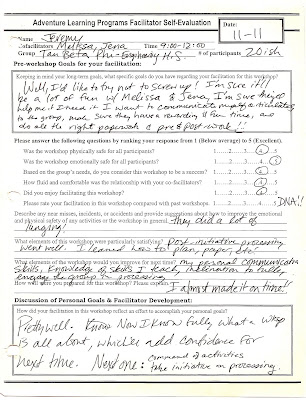 Adventure Learning Programs Facilitator Self-Evaluation
Date: 11-11
Name Jeremy
Cofacilitators Melissa, Jena Time 9:00-12:00
Group: Tau Beta Phi - Engineering H.S. # of participants 20ish
Pre-workshop Goals for your facilitation:
Keeping in mind your long-term goals, what specific goals do you have regarding your facilitation for this workshop?
Well, I'd like to try not to screw up! I'm sure it'll
be a lot of fun w/ Melissa & Jena, I'm sure they'll
help me if I need it. I want to communicate my
to the group, make sure they have a rewarding & fun time, and
do all the right paperwork & pre & post work!!
Please answer the following questions by ranking your response from 1 (Below average) to 5 (Excellent).
Was the workshop physically safe for all participants? 1 2 3 4 5
Was the workshop emotionally safe for all participants? 1 2 3 4 5
Based on the group's needs, do you consider this workshop to be a success? 1 2 3 4 5
How fluid and comfortable was the relationship with your co-facilitators? 1 2 3 4 5
Did you enjoy facilitating this workshop? 1 2 3 4 5
Please rate your facilitation in this workshop compared with past workshops. 1 2 3 4 5 DNA!!
Describe any near misses, incidents, or accidents and provide suggestions about how to improve the emotional
and physical safety of any activities or the workshop in general. They did a lot of
laughing!
What elements of this workshop were particularly satisfying? Post-initiative processing
went well. I learned how to plan, paper, etc.
What elements of the workshop would you improve for next time? my personal communication
skills, knowledge of skills I teach, inclination to fully
engage the group in processing.
How well were you prepared for this workshop? Please explain.
I almost made it on time!!
Discussion of Personal Goals & Facilitator Development:
How did your facilitation in this workshop reflect an effort to accomplish your personal goals?
Pretty well. Know Now I know fully what a wksp
is all about, which'll add confidence for
next time. Next one: command of activities
take initiative on processing.